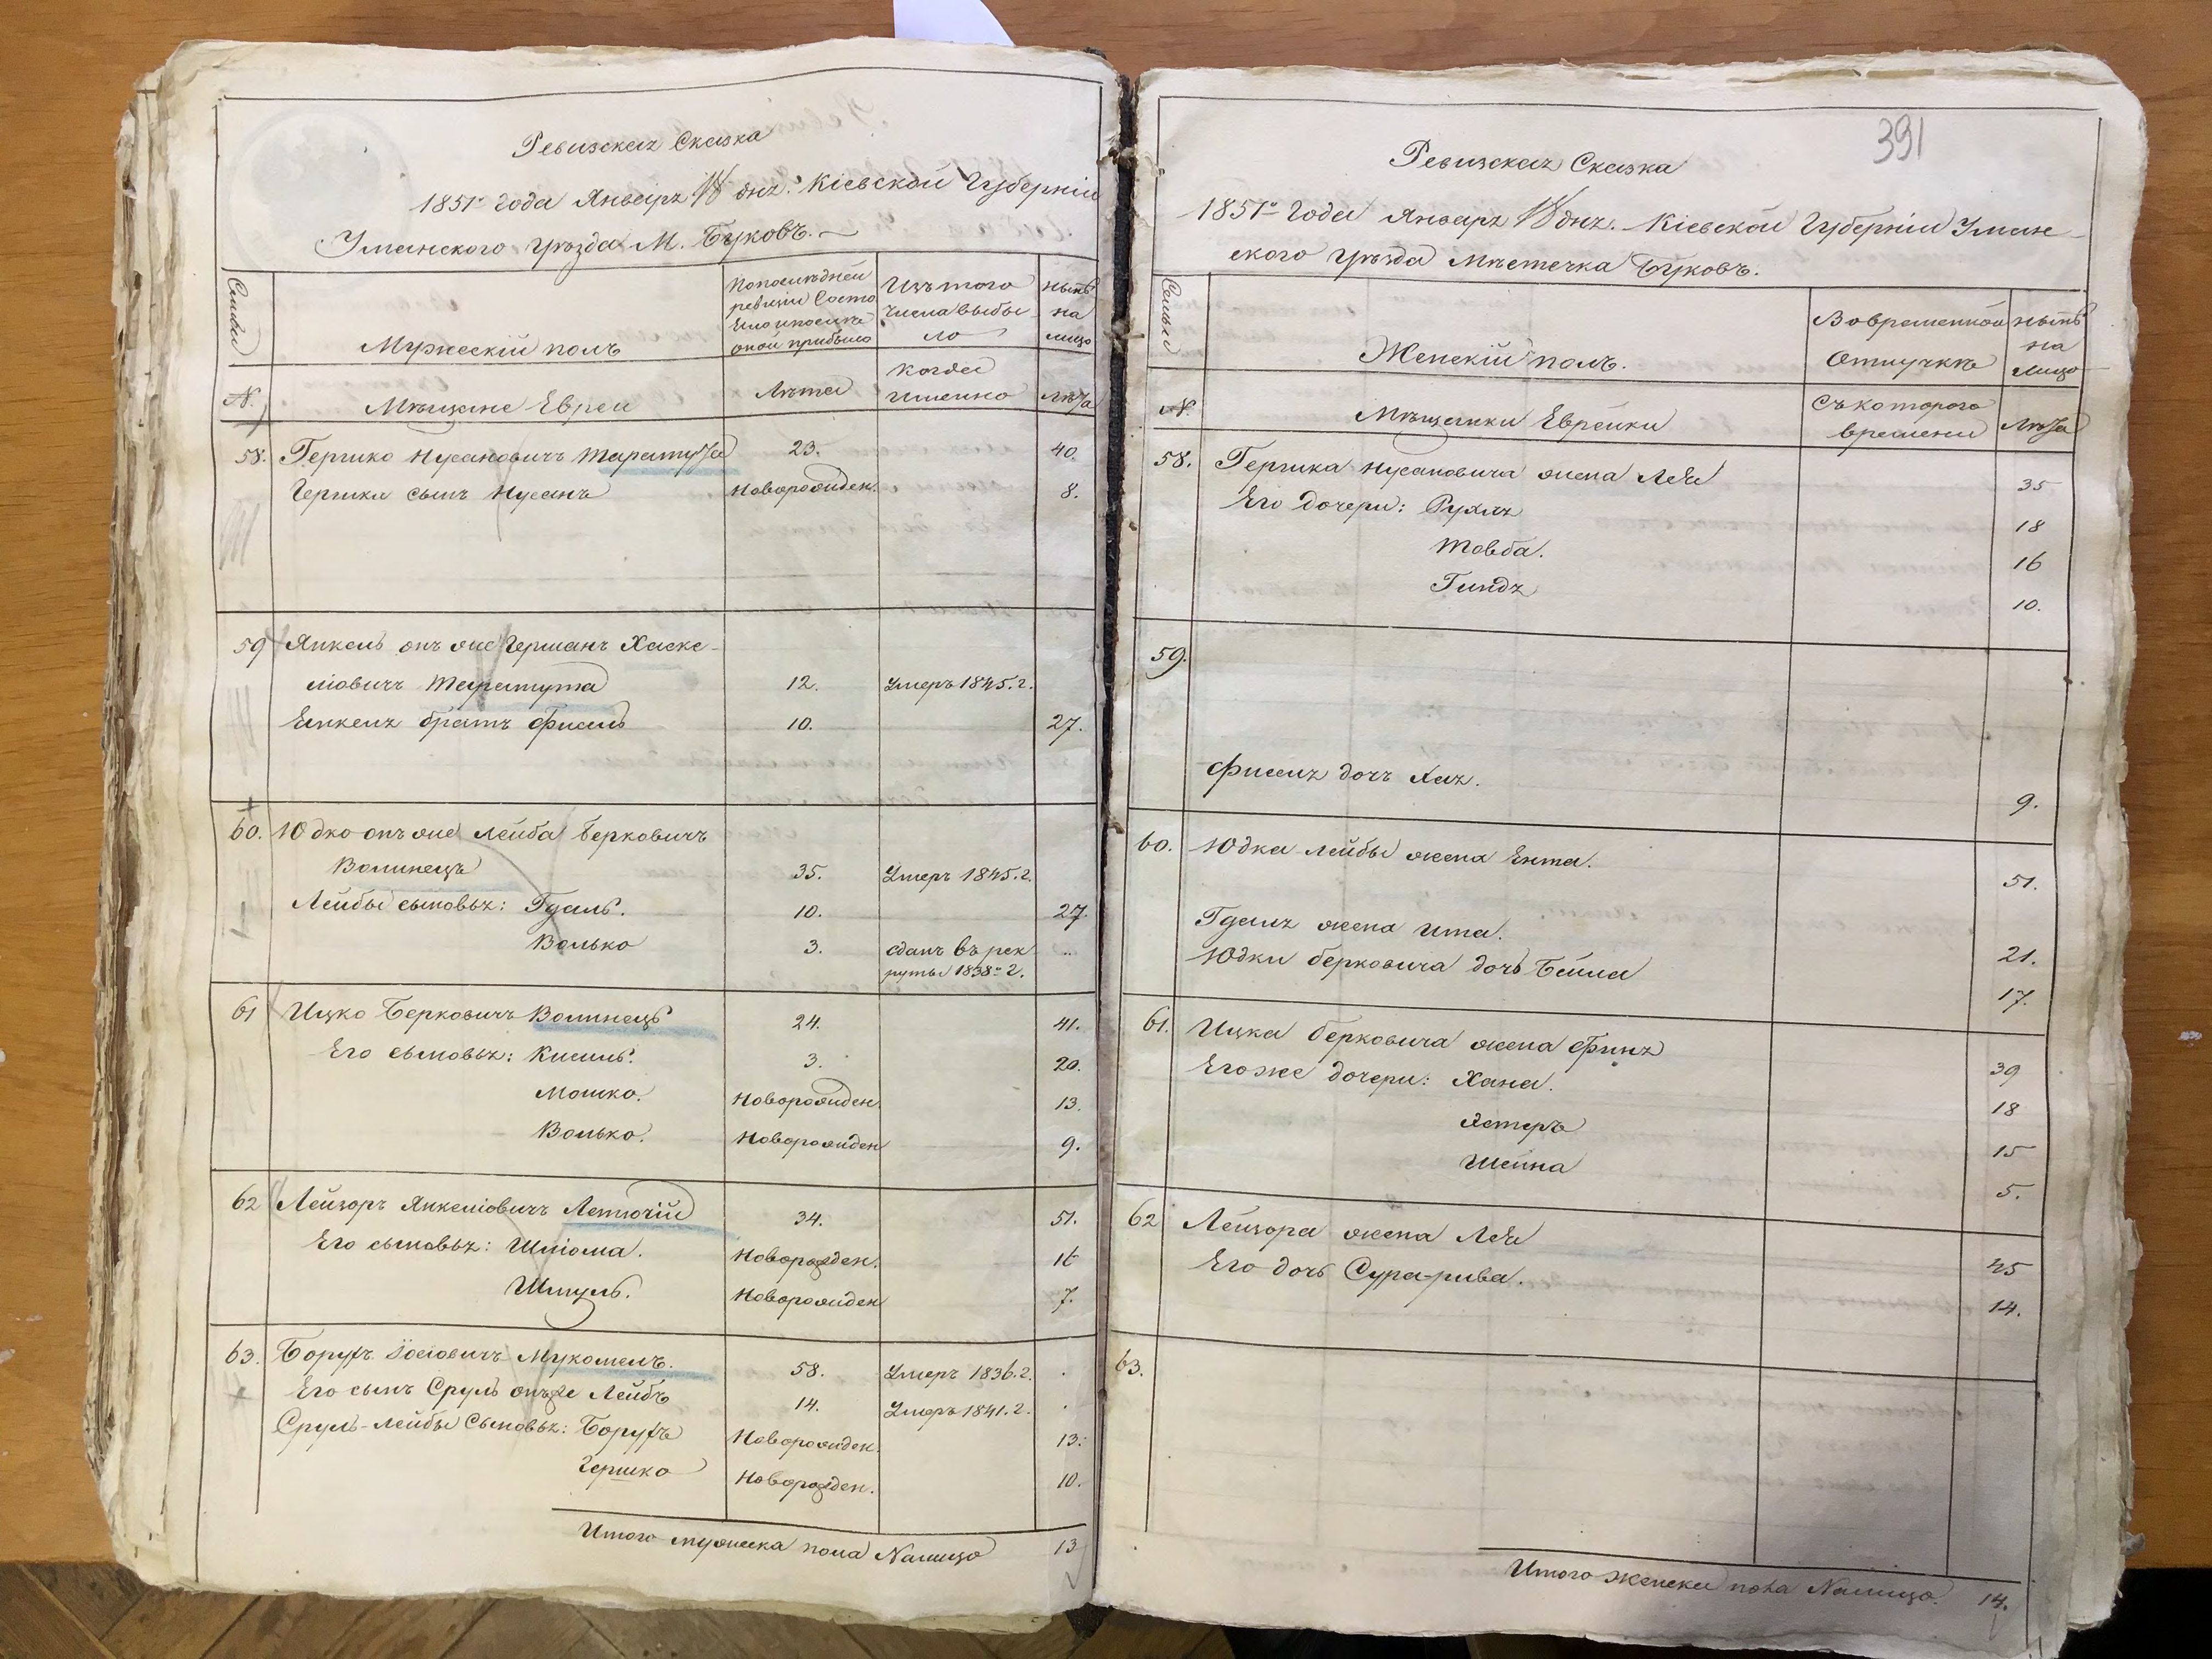 Ревизская Сказка
1851го года Января 18 дня. Кіевской Губерніи
Уманского уѣзда М. Буковъ.
Семьи
Мужескій полъ
По послѣдней
ревизіи Состо
яло и послѣ
оной прибыло
Изъ того
числа выбы
ло
нынѣ
на
лицо
№.
Мѣщане Евреи
Лѣта
когда
именно
лѣта
58. Гершко Нусановичъ Тарату́та 23. 40.
Гершка сынъ Нусанъ Новорожден. 8.
59 Янкель онъ же Германъ Хаске-
ліовичъ Таратута 12. Умеръ 1845. г.
Янкеля братъ Фисель 10. 27.
60. Юдко онъ же Лейба Берковичъ
Волинецъ 35. Умеръ 1845. г.
Лейбы сыновья: Гдаль. 10. 27.
Волько 3. сданъ въ рек
руты 1838го г.
61 Ицко Берковичъ Волинецъ 24. 41.
Его сыновья: Кисиль. 3. 20.
Мошко. Новорожден. 13.
Волько. Новорожден 9.
62 Лейзоръ Янкеліовичъ Летючій 34. 51.
Его сыновья: Шліома. Новорожден. 16
Шмуль. Новорожден 7.
63. Борухъ Іосіовичъ Мукомелъ. 58. Умеръ 1836. г.
Его сынъ Сруль онъже Лейбъ 14. Умеръ 1841. г.
Сруль-Лейбы Сыновья: Борухъ Новорожден. 13.
Гершко Новорожден. 10.
Итого мужеска пола Налицо 13
391
Ревизская Сказка
1851го Года Января 18 дня. Кіевской Губерніи Уман-
ского уѣзда Мѣстечка Буковъ.
Семьи
Женскій полъ.
В временной
Отлучкѣ
нынѣ
на
лицо
№.
Мѣщанки Еврейки
Съ которого
времени
Лѣта
58. Гершка Нусановича жена Лея 35
Его дочери: Рухля 18
Товба. 16
Гиндя 10.
59.
Фиселя дочь Хая. 9.
60. Юдка-Лейбы жена Ента. 51.
Гдаля жена Ита. 21.
Юдки Берковича дочь Бейла 17.
61. Ицка Берковича жена Финя 39
Его же дочери: Хана. 18
Эстеръ 15
Шейна 5.
62 Лейзора жена Лея 45
Его дочь Сура-рива. 14.
63.
Итого Женска пола Налицо. 14.